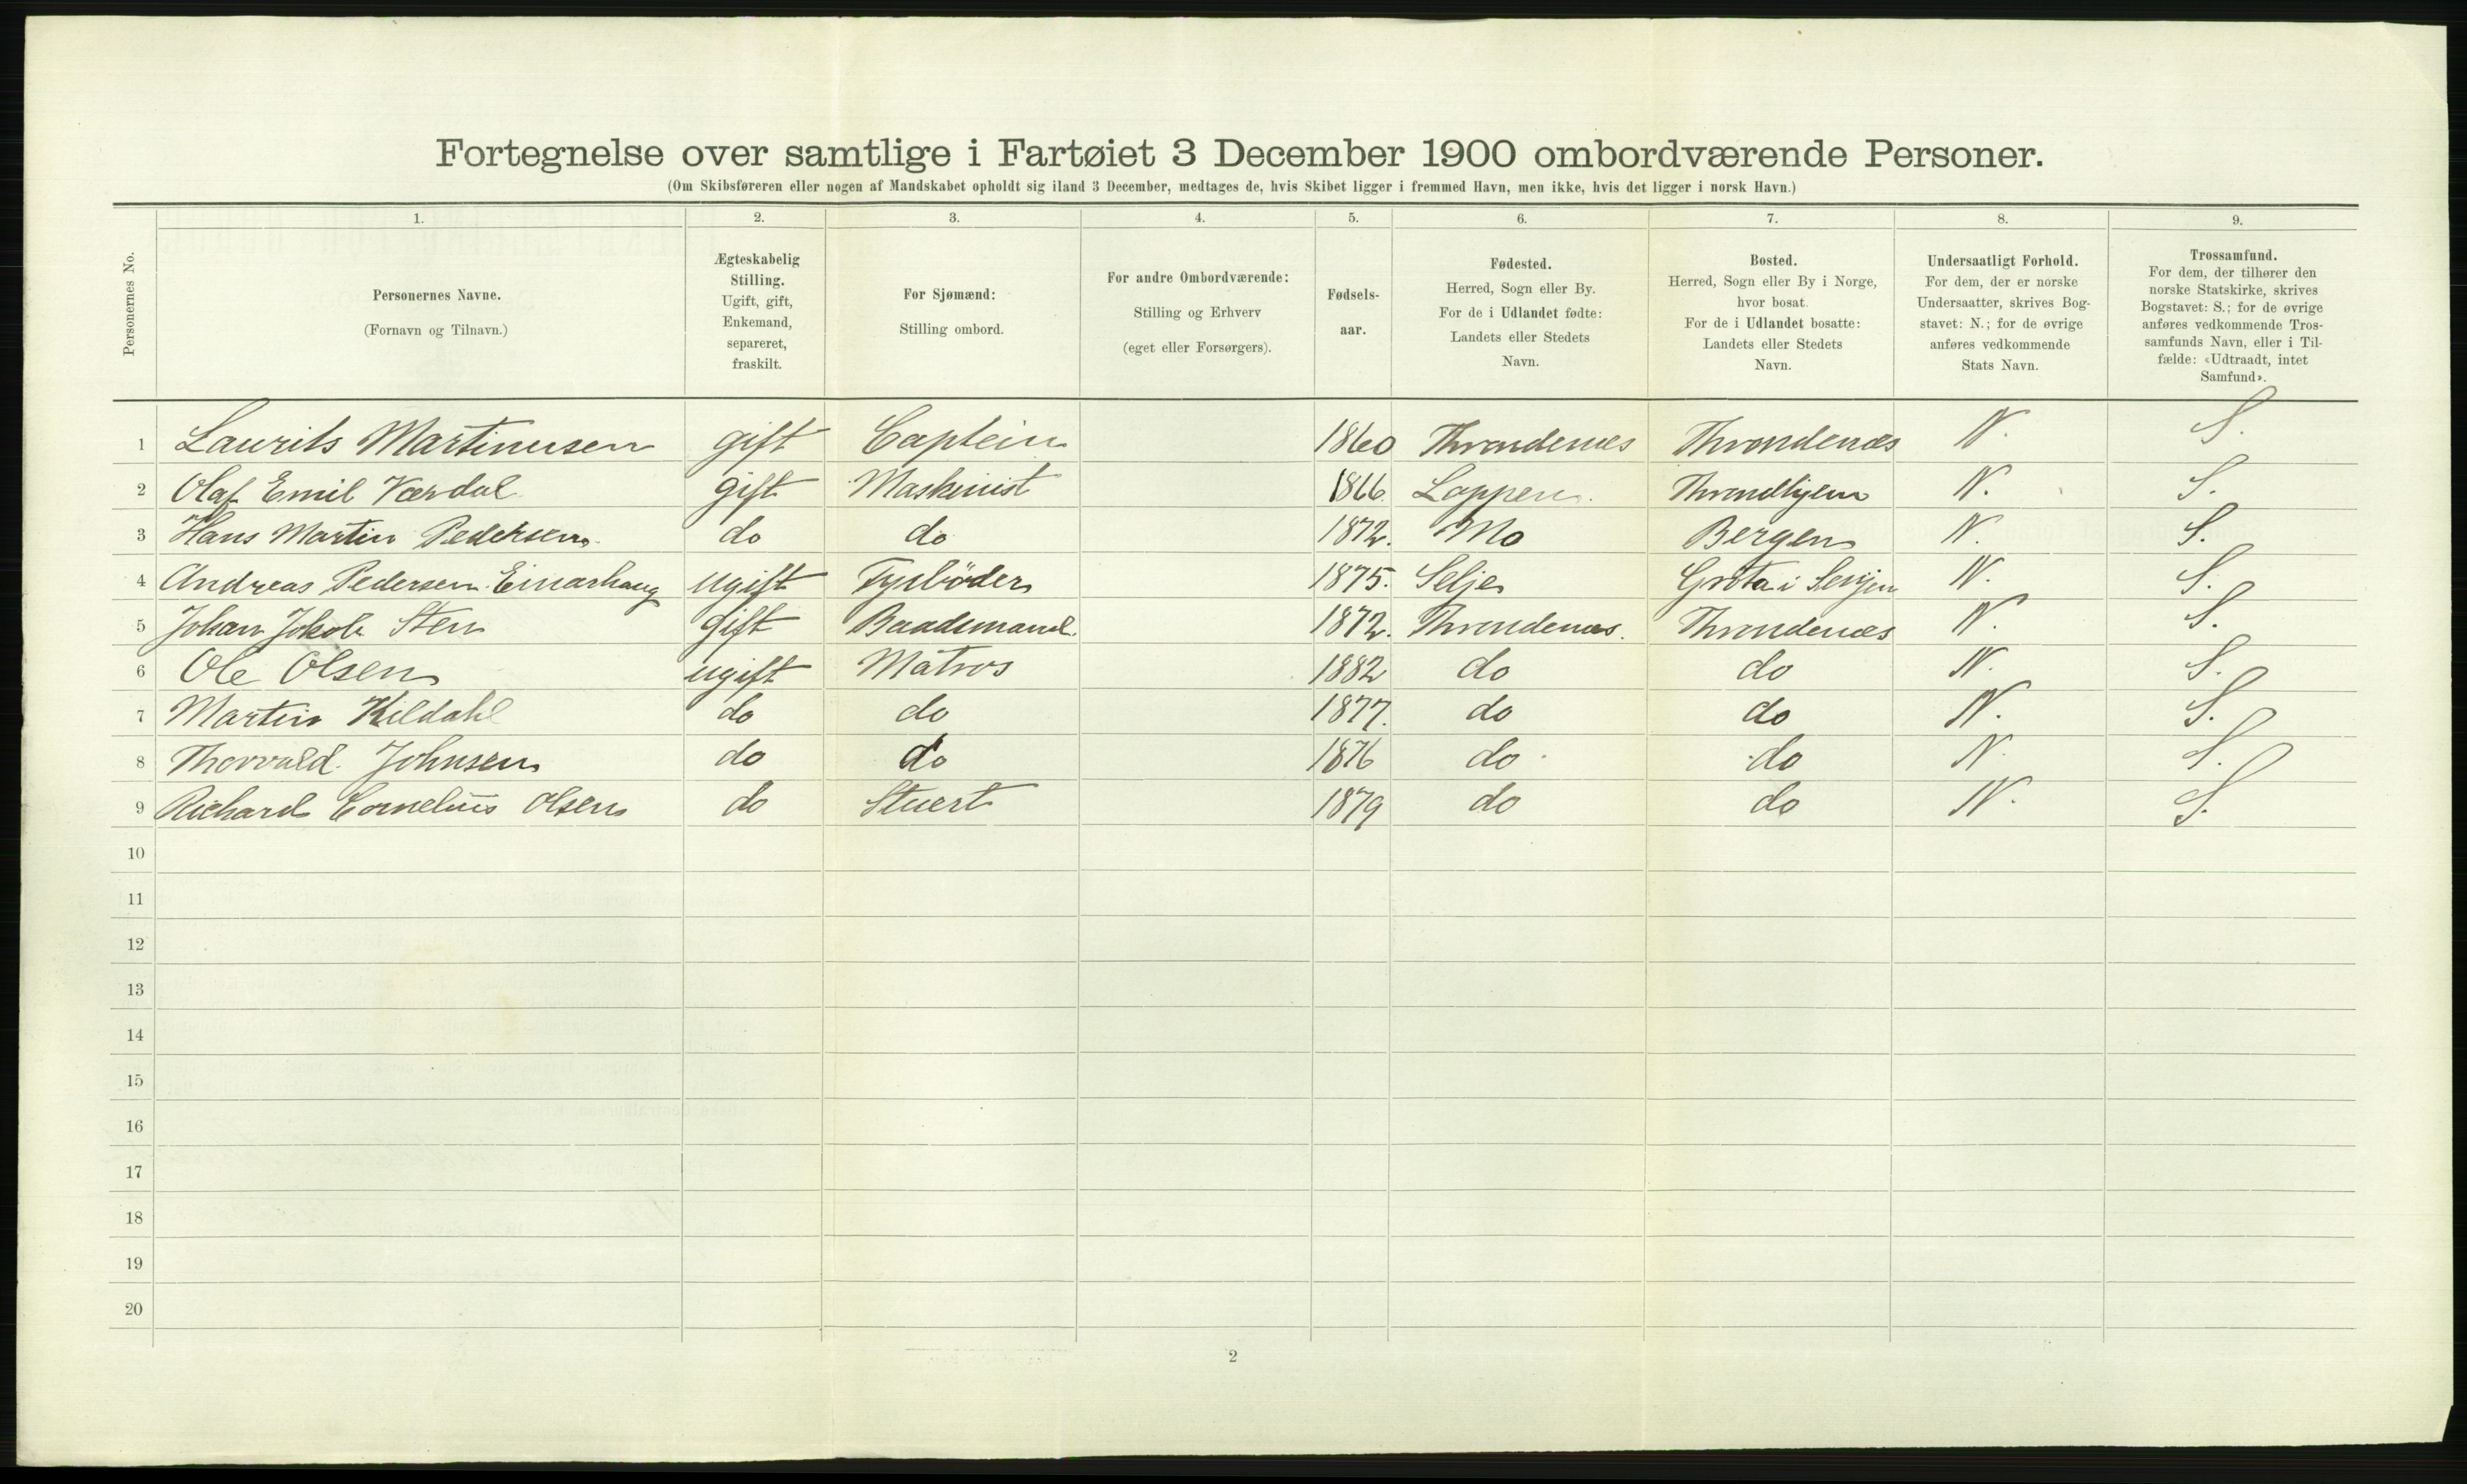 Fortegnelse over samtlige i Fartøiet 3 December 1900 ombordværende Personer.
(Om Skibsføreren eller nogen af Mandskabet opholdt sig iland 3 December, medtages de, hvis Skibet ligger i fremmed Havn, men ikke, hvis det ligger i norsk Havn.)
Personernes No.
1.
Personernes Navne.
(Fornavn og Tilnavn.)
2.
Ægteskabelig
Stilling.
Ugift, gift,
Enkemand,
separeret,
fraskilt.
3.
For Sjømænd:
Stilling ombord.
4.
For andre Ombordværende:
Stilling og Erhverv
(eget eller Forsørgers).
5.
Fødsels-
aar.
6.
Fødested.
Herred, Sogn eller By.
For de i Udlandet fødte:
Landets eller Stedets
Navn.
7.
Bosted.
Herred, Sogn eller By i Norge,
hvor bosat.
For de i Udlandet bosatte:
Landets eller Stedets
Navn.
8.
Undersaatligt Forhold.
For dem, der er norske
Undersaatter, skrives Bog-
stavet: N.; for de øvrige
anføres vedkommende
Stats Navn.
9.
Trossamfund.
For dem, der tilhører den
norske Statskirke, skrives
Bogstavet: S.; for de øvrige
anføres vedkommende Tros-
samfunds Navn, eller i Til-
fælde: «Udtraadt, intet
Samfund».
1 Laurits Martinusen gift Captein 1860 Throndenæs Throndenæs N. S.
2 Olaf Emil Værdal gift Maskinist 1866. Loppen. Throndhjem N. S.
3 Hans Martin Pedersen. do do 1872. Mo Bergen N. S.
4 Andreas Pedersen Einarhaug ugift Fyrböder 1875. Selje Grøta i Senjen N. S.
5 Johan Jokob Sten gift Baadsmand. 1872. Throndenæs. Throndenæs N. S.
6 Ole Olsen ugift Matros 1882 do do N. S.
7 Martin Kildahl do do 1877. do do N. S.
8 Thorvald. Johnsen do do 1876 do do N. S.
9 Richard Cornelius Olsen do Stuert 1879 do do N. S.
10
11
12
13
14
15
16
17
18
19
20
2